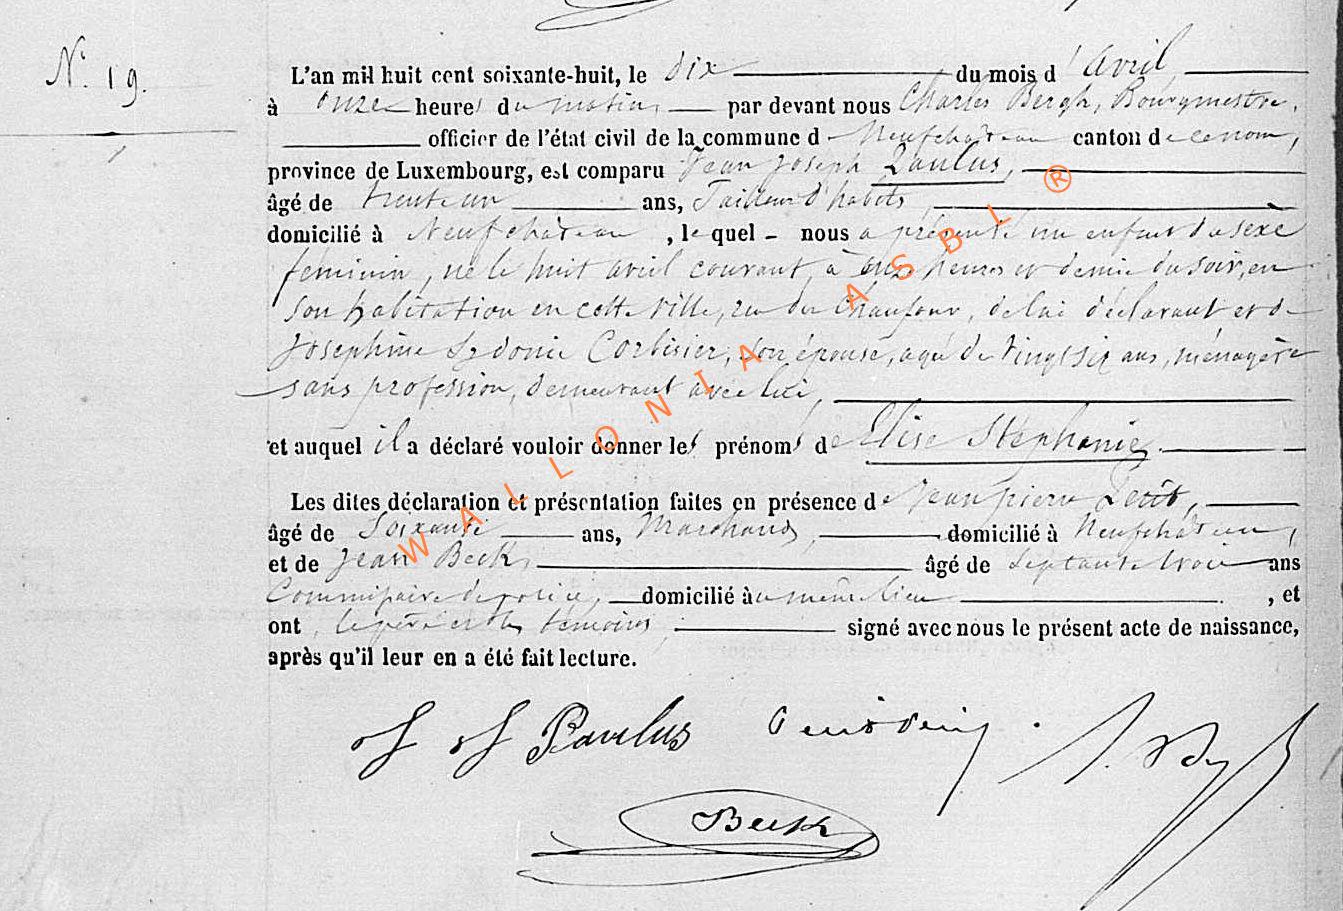 N.° 19.
L'an mil huit cent soixante-huit, le dix du mois d'avril,
à onze heures du matin, par devant nous Charles Bergh, Bourgmestre,
officier de l'état civil de la commune de Neufchâteau canton de ce nom,
province de Luxembourg, est comparu Jean Joseph Paulus,
âgé de trente un ans, Tailleur d'habits,
domicilié à Neufchâteau, lequel nous a présenté un enfant du sexe
féminin, né le huit avril courant, à onze heures et demie du soir, en
son habitation en cette ville, rue du Chaufour, de lui déclarant et de
Joséphine Sydonie Corbisier, son épouse, agée de vingt six ans, ménagère
sans profession, demeurant avec lui,
et auquel il a déclaré vouloir donner les prénoms de Elise Stéphanie.
Les dites déclaration et présentation faites en présence de Jean pierre Petit,
âgé de Soixante ans, Marchand, domicilié à Neufchâteau,
et de Jean Beck, âgé de Septante trois ans
Commissaire de police, domicilié au même lieu, et
ont, le père et les témoins, signé avec nous le présent acte de naissance,
après qu'il leur en a été fait lecture.
J J Paulus
Beck
WALLONIA ASBL ®